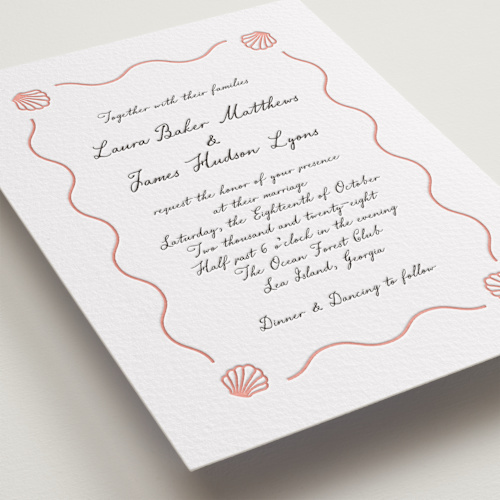 Together with their families
Laura Baker Matthews
&
James Hudson Lyons
request the honor of your presence
at their marriage
Saturday, the Eighteenth of October
Two thousand and twenty-eight
Half past 6 o'clock in the evening
The Ocean Forest Club
Lea Island, Georgia
Dinner & Dancing to follow